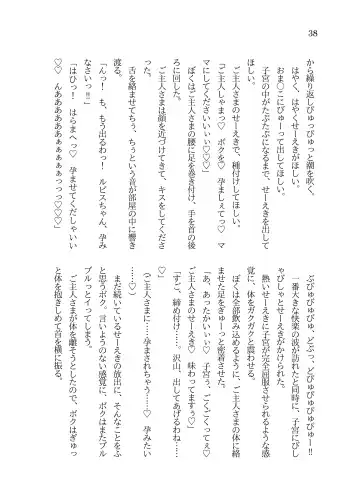 38
から繰り返しぴゅっぴゅっと潮を吹く。
はやく、はやくせーえきがほしい。
おま〇こにぴゅーって出してほしい。
子宮の中がたぷたぷになるまで、せーえきを出して
ほしい。
ご主人さまのせーえきで、種付けしてほしい。
「ご主人しゃまっ♡ ボクを♡ 孕ましぇてっ♡ マ
マにしてくださいいぃぃ♡♡♡」
ぼくはご主人さまの腰に足を巻き付け、手を首の後
ろに回した。
ご主人さまは顔を近づけてきて、キスをしてくださ
った。
舌を絡ませてちぅ、ちぅという音が部屋の中に響き
渡る。
「んっ! も、もう出るわっ! ルビスちゃん、孕み
なさいっ!!」
「はひっ! はらまへっ♡ 孕ませてくだしゃいい
♡♡ んああああああぁぁぁぁぁっっっ♡♡♡」
ぶびゅゅびゅびゅ、どぷっ、どびゅびゅびゅびゅー!!
一番大きな快楽の波が訪れたと同時に、子宮にびし
ゃびしゃとせーえきがかけられた。
熱いせーえきに子宮が完全屈服させられるような感
覚に、体をガクガクと震わせる。
ぼくは全部飲み込めるように、ご主人さまの体に絡
ませた足をぎゅーっと密着させた。
「あ、あったかいいぃ♡ 子宮ぅ、ごくごくってぇ♡
ご主人さまのせーえき♡ 味わってますぅ♡」
「すご、締め付け……。沢山、出してあげるわね……
♡」
(ご主人さまに……孕まされちゃう……♡ 孕みたい
……♡)
まだ続いているせーえきの放出に、そんなことをふ
と思うボク。言いようのない感覚に、ボクはまたプル
プルっとイってしまう。
ご主人さまが体を離そうとしたので、ボクはぎゅっ
と体を抱きしめて首を横に振る。